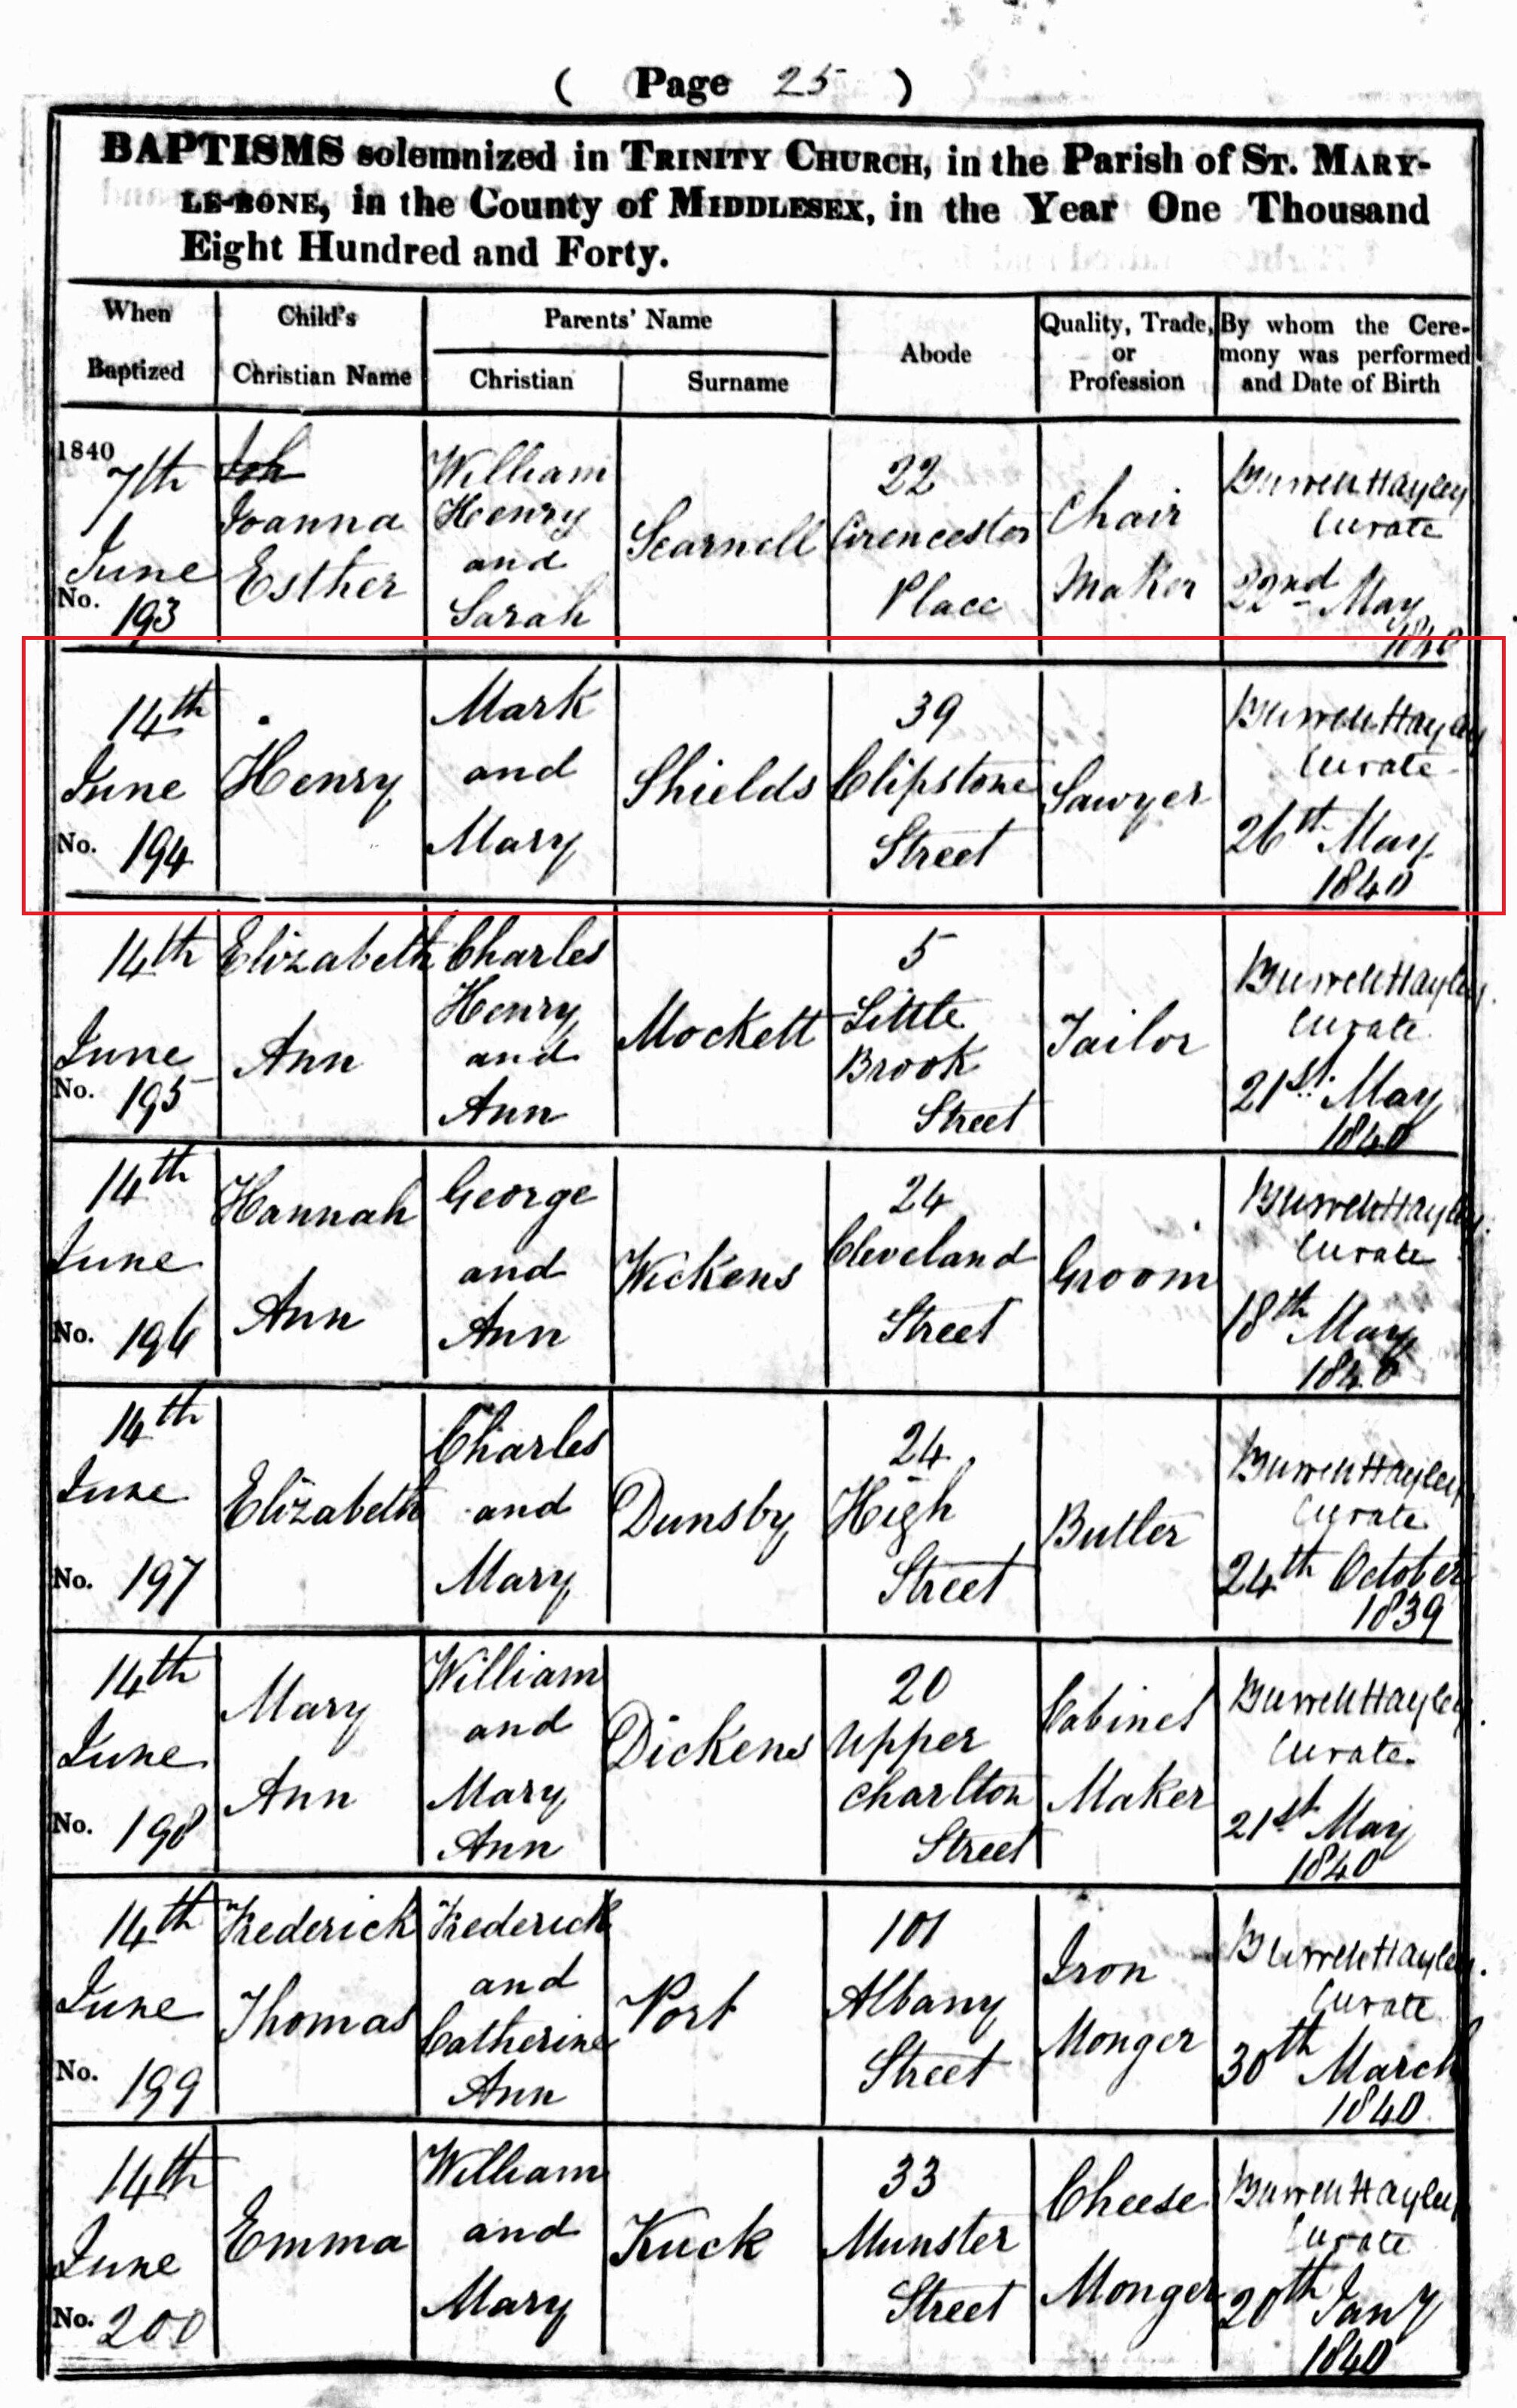 ( Page 25 )
BAPTISMS solemnized in TRINITY CHURCH, in the Parish of ST. MARY-
LE-BONE, in the County of MIDDLESEX, in the Year One Thousand
Eight Hundred and Forty.
When Baptized
Child's Christian Name
Parents' Name
Christian
Surname
Abode
Quality, Trade, or Profession
By whom the Ceremony was performed and Date of Birth
1840
7th
June
No. 193
Joh
Joanna
Esther
William
Henry
and
Sarah
Scarnell
22
Cirencester
Place
Chair
Maker
Burrell Hayley
Curate
22nd May
1840
14th
June
No. 194
Henry
Mark
and
Mary
Shields
39
Clipstone
Street
Sawyer
Burrell Hayley
Curate
26th May
1840
14th
June
No. 195
Elizabeth
Ann
Charles
Henry
and
Ann
Mockett
5
Little
Brook
Street
Tailor
Burrell Hayley
Curate
21st May
1840
14th
June
No. 196
Hannah
Ann
George
and
Ann
Wickens
24
Cleveland
Street
Groom
Burrell Hayley
Curate
18th May
1840
14th
June
No. 197
Elizabeth
Charles
and
Mary
Dunsby
24
High
Street
Butler
Burrell Hayley
Curate
24th October
1839
14th
June
No. 198
Mary
Ann
William
and
Mary
Ann
Dickens
20
Upper
Charlton
Street
Cabinet
Maker
Burrell Hayley
Curate
21st May
1840
14th
June
No. 199
Frederick
Thomas
Frederick
and
Catherine
Ann
Port
101
Albany
Street
Iron
Monger
Burrell Hayley
Curate
30th March
1840
14th
June
No. 200
Emma
William
and
Mary
Kuck
33
Munster
Street
Cheese
Monger
Burrell Hayley
Curate
20th Jany
1840